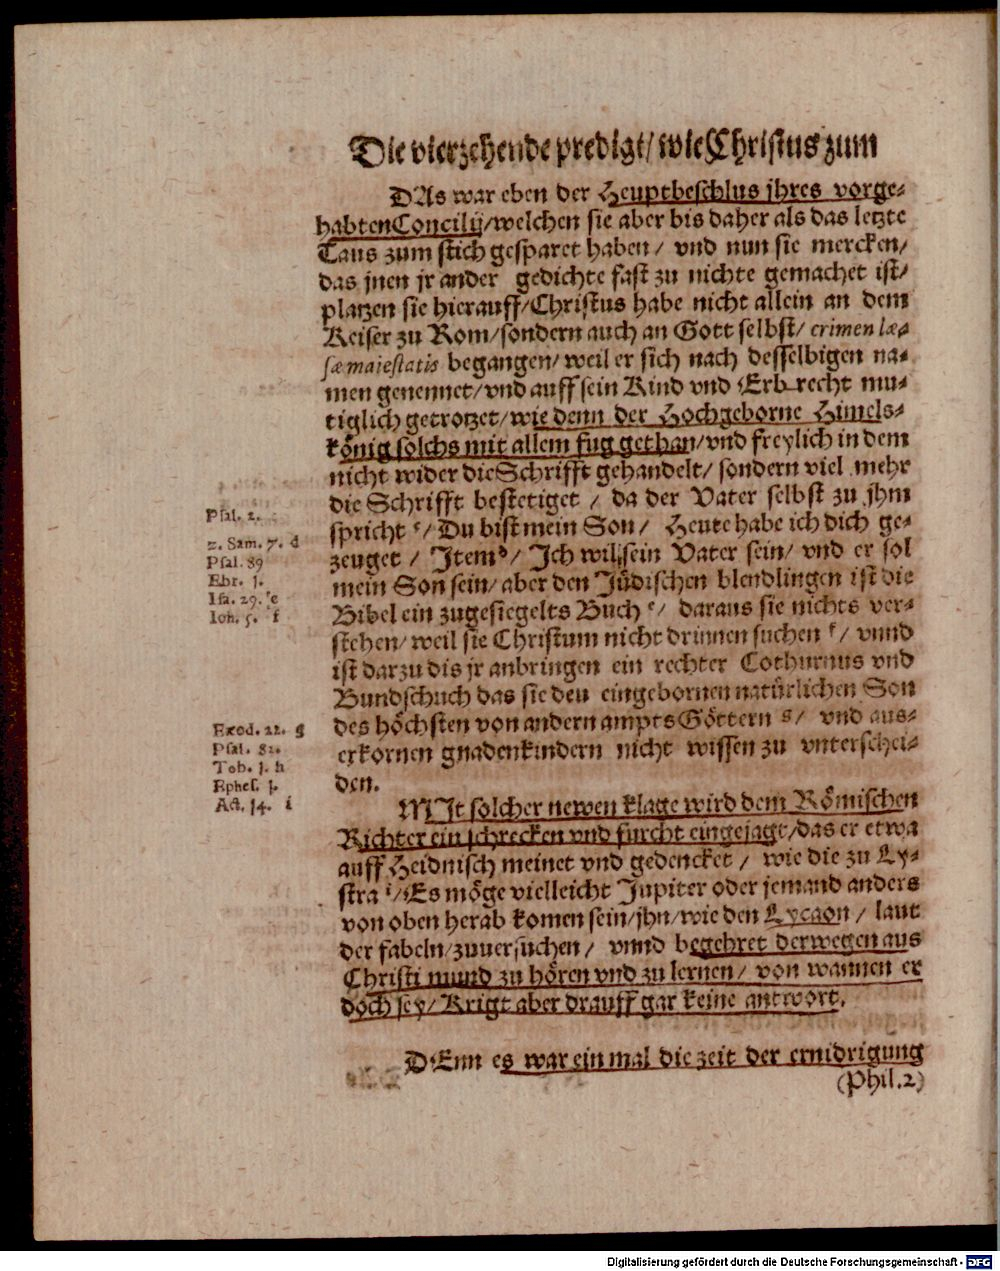 Die vierzehende predigt/ wie Christus zum
DAs war eben der Heuptbeschlus jhres vorge-
habten Concilij/welchen sie aber bis daher als das letzte
Taus zum stich gesparet haben/ vnd nun sie mercken/
das jnen jr ander gedichte fast zu nichte gemachet ist/
platzen sie hierauff/Christus habe nicht allein an dem
Keiser zu Rom/sondern auch an Gott selbst/ crimen læ-
sæ maiestatis begangen/ weil er sich nach desselbigen na-
men genennet/vnd auff sein Kind vnd Erbrecht mu-
tiglich getrotzet/wie denn der Hochgeborne Himels-
könig solchs mit allem fug gethan/vnd freylich in dem
nicht wider die Schrifft gehandelt/ sondern viel mehr
die Schrifft bestetiget / da der Vater selbst zu jhm
spricht c/ Du bist mein Son/ Heute habe ich dich ge-
zeuget / Item d/ Ich wil sein Vater sein/ vnd er sol
mein Son sein/ aber den Jüdischen blendlingen ist die
Bibel ein zugesiegelts Buch e/ daraus sie nichts ver-
stehen/ weil sie Christum nicht drinnen suchen f/ vnnd
ist darzu dis jr anbringen ein rechter Cothurnus vnd
Bundschuch das sie den eingebornen natürlichen Son
des höchsten von andern ampts Göttern g/ vnd aus-
erkornen gnadenkindern nicht wissen zu vnterschei-
den.
Psal. 2.
2. Sam. 7. d
Psal. 89
Ebr. j.
Isa. 29. e
Ioh. 5. f
Exod. 22. g
Psal. 82.
Iob. j. h
Ephes. j.
Act. j4. i
MJt solcher newen klage wird dem Römischen
Richter ein schrecken vnd furcht eingejagt/das er etwa
auff Heidnisch meinet vnd gedencket / wie die zu Ly-
stra i/Es möge vielleicht Jupiter oder jemand anders
von oben herab komen sein/jhn/wie den Lycaon / laut
der fabeln/zuuersuchen/ vnnd begehret derwegen aus
Christi mund zu hören vnd zu lernen/ von wannen er
doch sey/ Krigt aber drauff gar keine antwort.
DEnn es war ein mal die zeit der ernidrigung
(Phil.2)
Digitalisierung gefördert durch die Deutsche Forschungsgemeinschaft - DFG